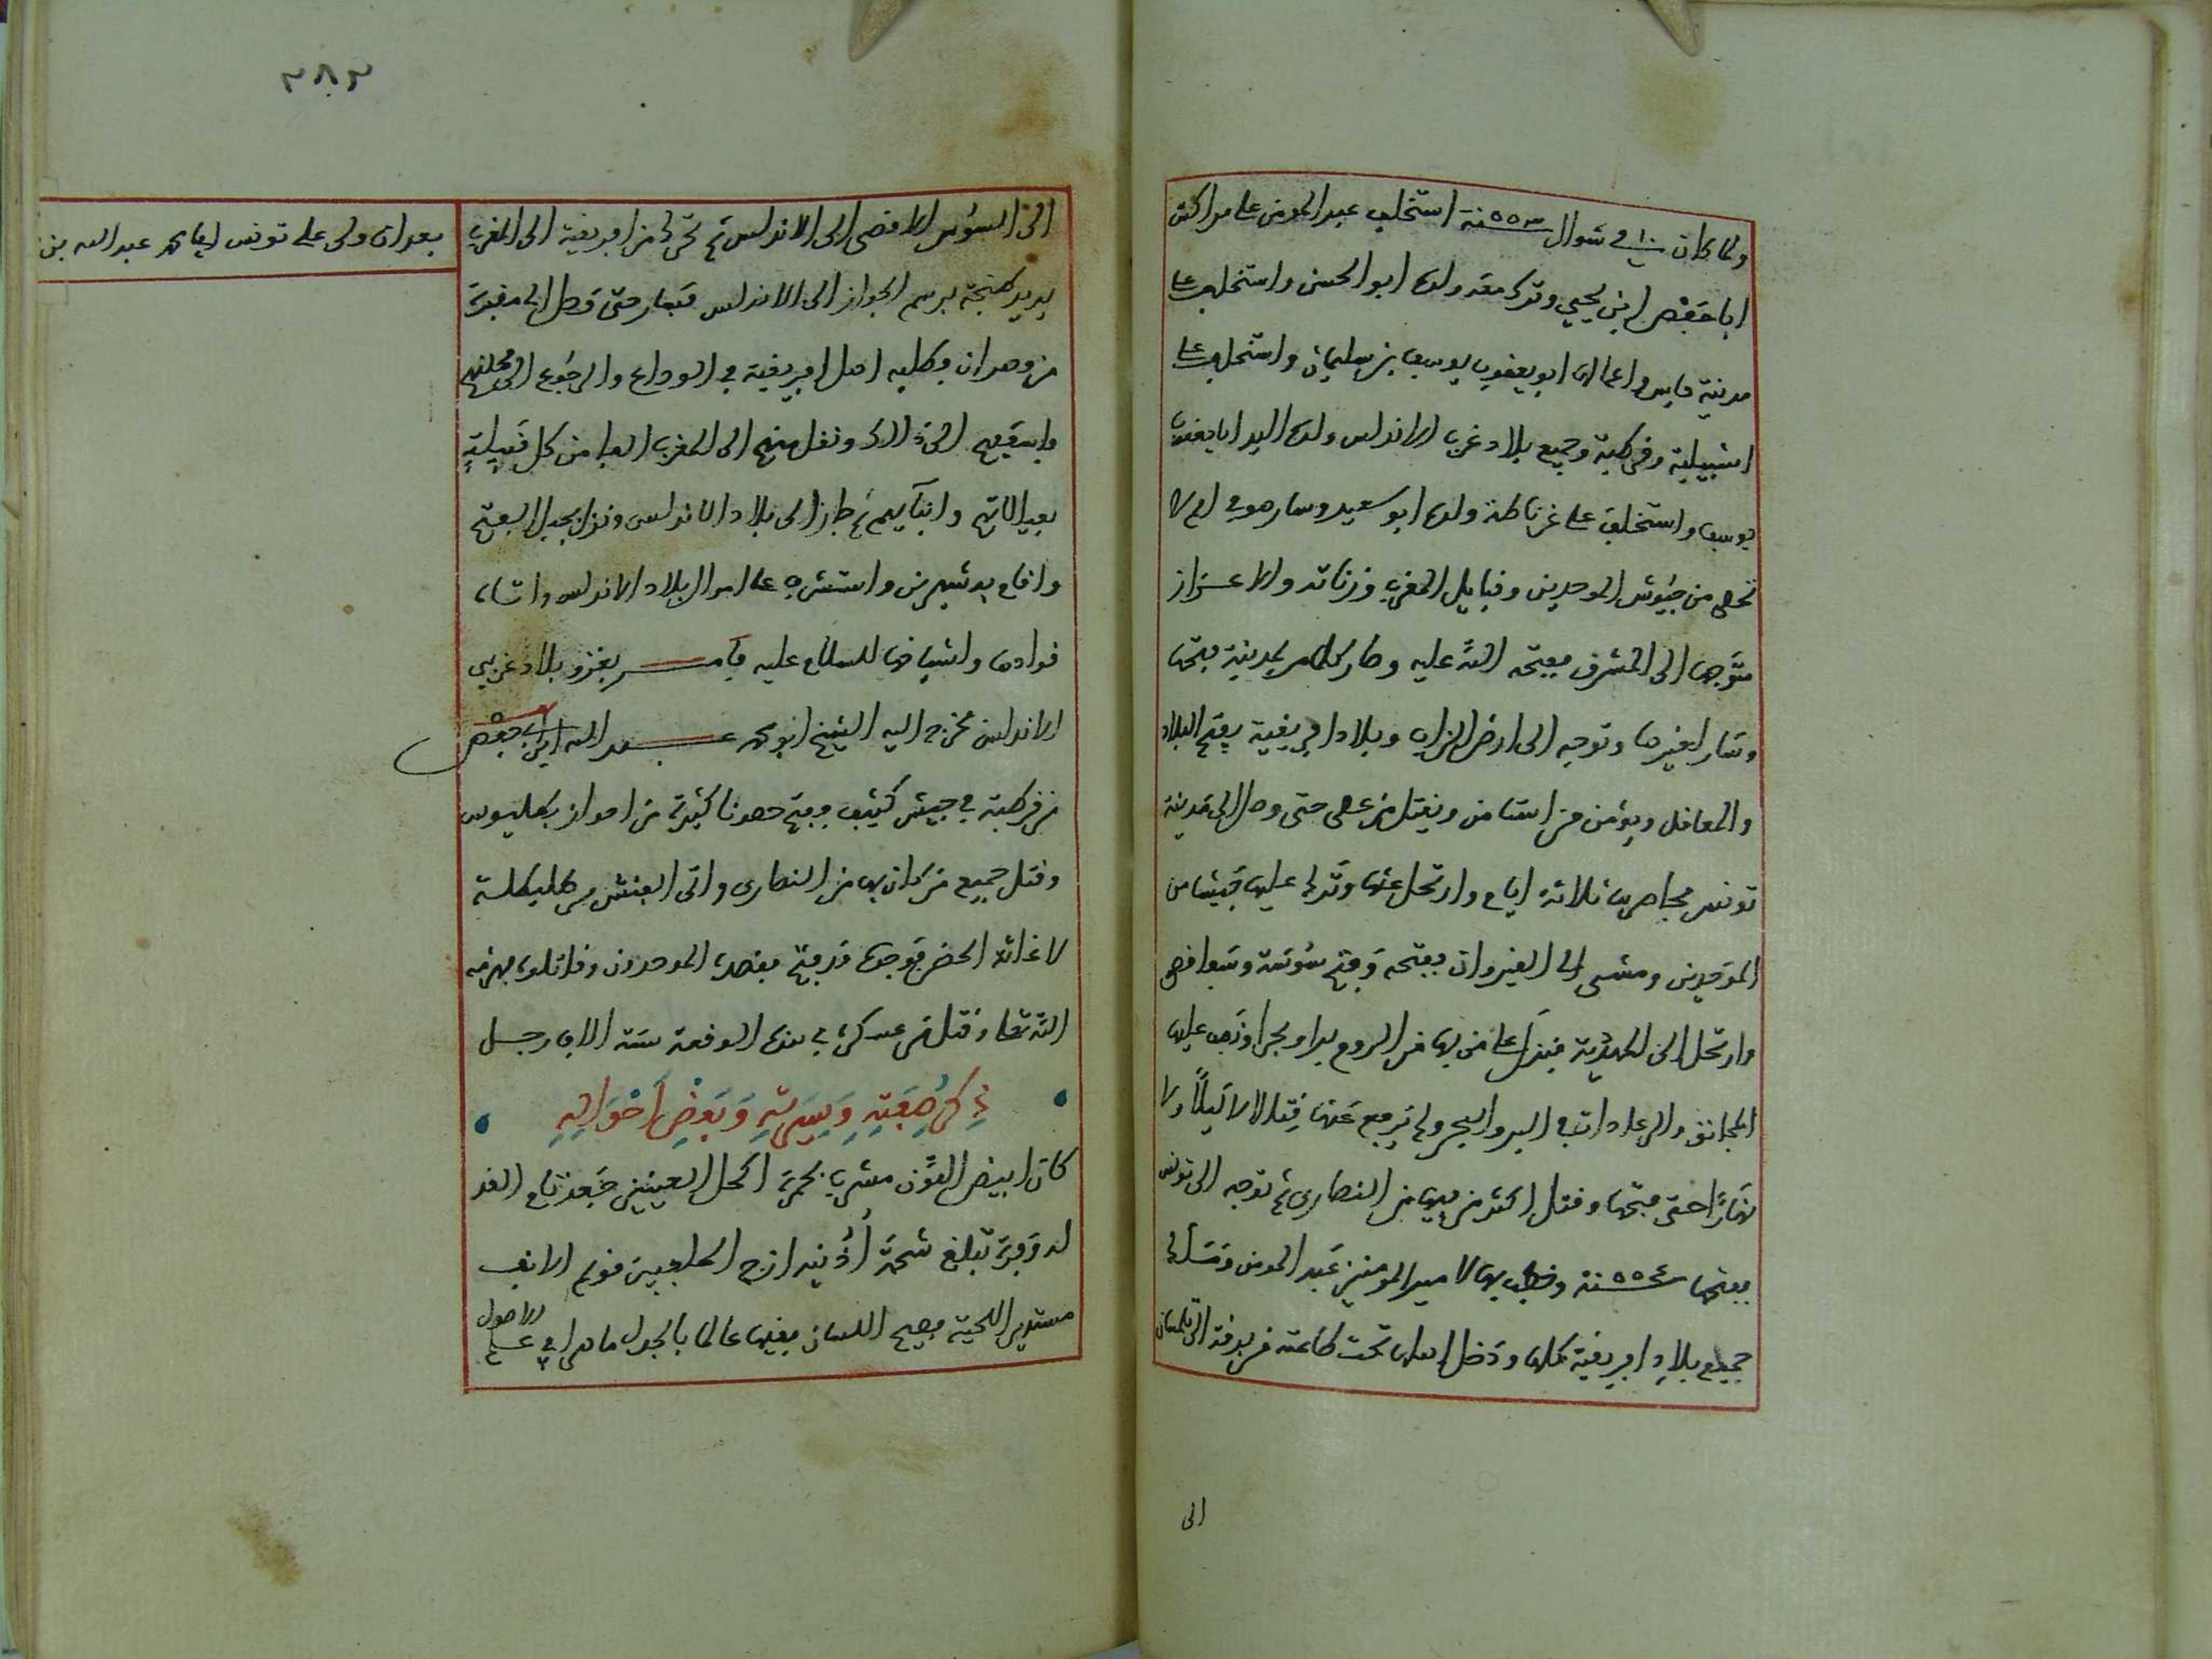 ولما كان ١٠ في شوال سنة ٥٥٣ استخلف عبد المومن على مراكش
ابا حفص ابن يحيى وترك معه ولده ابو الحسن واستخلف على
مدينة فاس واعمالها ابو يعقوب يوسف بن سليمان واستخلف على
اشبيلية وقرطبة وجميع بلاد غرب الاندلس ولده السيد ابا يعقوب
يوسف واستخلف على غرناطة ولده ابو سعيد وسار هو في امم لا
تحصى من جيوش الموحدين وقبايل المغرب وزناته والاغزاز
متوجها الى المشرق يفتحه الله عليه وصار كلما مر بمدينة فتحها
وسار لغيرها وتوجه الى ارض الزاب وبلاد افريقية يفتح البلاد
والمعاقل ويومن من استامن ويقتل من عصى حتى وصل الى مدينة
تونس فحاصرها ثلاثة ايام وارتحل عنها وترك عليها جيشا من
الموحدين ومشى الى القيروان ففتحه وفتح سوسة وسفاقص
وارتحل الى المهدية فنزل على من بها من الروم برا وبحرا ونصب عليها
المجانق والرعادات في البر والبحر ولم يرفع عنها قتالا لا ليلا ولا
نهارا حتى فتحها وقتل اكثر من فيها من النصارى ثم توجه الى تونس
ففتحها سنة ٥٥٤ وخطب بها لامير المومنين عبد المومن وملك
جميع بلاد افريقية كلها ودخل اهلها تحت طاعته من برقة الى تلمسان
الى
٣٨٣
الى السوس الاقصى الى الاندلس ثم تحرك من افريقية الى المغرب
يريد طنجة برسم الجواز الى الاندلس فسار حتى وصل الى مقربة
من وهران فطلبه اهل افريقية في الوداع والرجوع الى محلتهم
فاسعفهم الى ذالك ونقل منهم الى المغرب الفا من كل قبيلة
بعيالاتهم وابنآيهم ثم جاز الى بلاد الاندلس ونزل بجبل الفتح
واقام به شهرين واستشرف على احوال بلاد الاندلس واتاه
قوادها واشياخها للسلام عليه فامر بغزو بلاد غربي
الاندلس فخرج اليه الشيخ ابو محمد عبد الله ابن ابي حفص
من قرطبة في جيش كثيف ففتح حصونا كثيرة من احواز بطليوس
وقتل جميع من كان بها من النصارى واتى الفنش من طليطلة
لاغاثة الحصن فوجده قد فتح فقصده الموحدون وقاتلوه فهزمه
الله تعالى وقتل من عسكره في هذه الوقعة ستة الاف رجل
ذكر صفته وسيرته وبعض احواله
كان ابيض اللون مشرب بحمرة اكحل العينين جعد تام القد
له وفرة تبلغ شحمة أذنيه ازج الحاجبين قويم الانف
مستدير اللحية فصيح اللسان فقيها عالما بالجدل ماهرا في علم الاصول
بعد ان ولى على تونس ابا محمد عبد الله بن